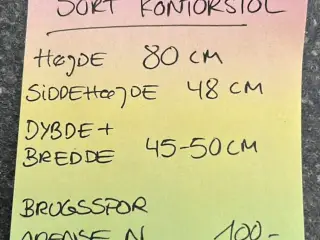 SORT KONTORSTOL
HØJDE 80 CM
SIDDEHØJDE 48 CM
DYBDE +
BREDDE 45-50 CM
BRUGSSPOR
ODENSE N 100,-